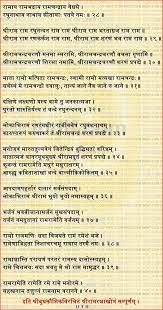 रामाय रामभद्राय रामचन्द्राय वेधसे।
रघुनाथाय नाथाय सीतायाः पतये नमः॥ २७॥
श्रीराम राम रघुनन्दन राम राम, श्रीराम राम भरताग्रज राम राम।
श्रीराम राम रणकर्कश राम राम, श्रीराम राम शरणं भव राम राम॥ २८॥
श्रीरामचन्द्रचरणौ मनसा स्मरामि, श्रीरामचन्द्रचरणौ वचसा गृणामि।
श्रीरामचन्द्रचरणौ शिरसा नमामि, श्रीरामचन्द्रचरणौ शरणं प्रपद्ये॥ २९॥
माता रामो मत्पिता रामचन्द्रः, स्वामी रामो मत्सखा रामचन्द्रः।
सर्वस्वं मे रामचन्द्रो दयालुः, नान्यं जाने नैव जाने न जाने॥ ३०॥
दक्षिणे लक्ष्मणो यस्य वामे तु जनकात्मजा।
पुरतो मारुतिर्यस्य तं वन्दे रघुनन्दनम्॥ ३१॥
लोकाभिरामं रणरङ्गधीरं राजीवनेत्रं रघुवंशनाथम्।
कारुण्यरूपं करुणाकरं तं श्रीरामचन्द्रं शरणं प्रपद्ये॥ ३२॥
मनोजवं मारुततुल्यवेगं जितेन्द्रियं बुद्धिमतां वरिष्ठम्।
वातात्मजं वानरयूथमुख्यं श्रीरामदूतं शरणं प्रपद्ये॥ ३३॥
कूजन्तं रामरामेति मधुरं मधुराक्षरम्।
आरुह्य कविताशाखां वन्दे वाल्मीकिकोकिलम्॥ ३४॥
आपदामपहर्तारं दातारं सर्वसम्पदाम्।
लोकाभिरामं श्रीरामं भूयो भूयो नमाम्यहम्॥ ३५॥
भर्जनं भवबीजानामर्जनं सुखसम्पदाम्।
तर्जनं यमदूतानां रामरामेति गर्जनम्॥ ३६॥
रामो राजमणिः सदा विजयते रामं रमेशं भजे
रामेणाभिहता निशाचरचमू रामाय तस्मै नमः।
रामान्नास्ति परायणं परतरं रामस्य दासोऽस्म्यहम्
रामे चित्तलयः सदा भवतु मे भो राम मामुद्धर॥ ३७॥
राम रामेति रामेति रमे रामे मनोरमे।
सहस्रनाम तत्तुल्यं रामनाम वरानने॥ ३८॥
इति श्रीबुधकौशिकविरचितं श्रीरामरक्षास्तोत्रं सम्पूर्णम्।